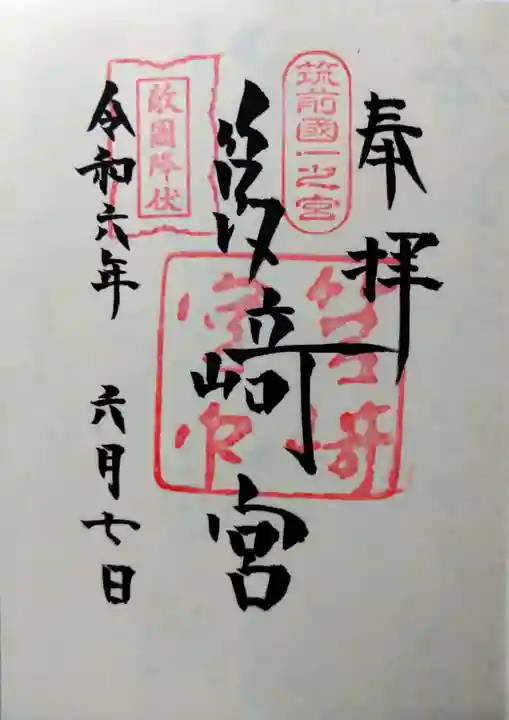 奉拝
筑前國一之宮
筥崎宮
敵國降伏
令和六年 六月七日